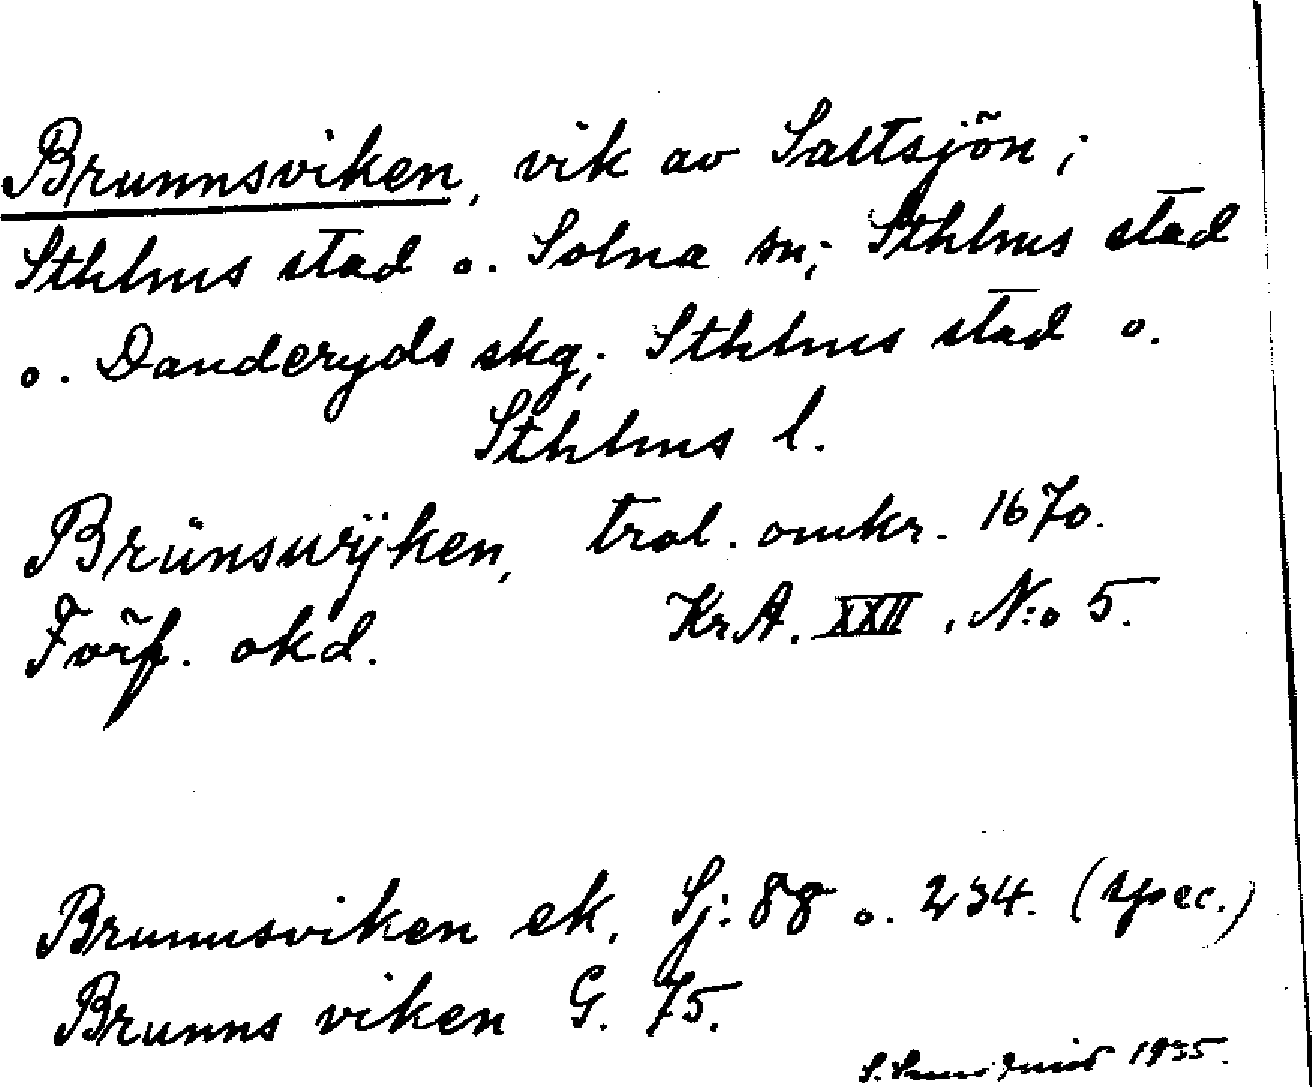 Brunnsviken, vik av Saltsjön;
Sthlms stad o. Solna sn; Sthlms stad
o. Danderyds skg; Sthlms stad o.
Sthlms l.
Brünswÿken, trol. omkr. 1670.
Förf. okd. KrA. XXII. N:o 5.
Brunnsviken ek. Sj: 88 o. 234. (spec.)
Brunns viken G. 75.
S. 1935.